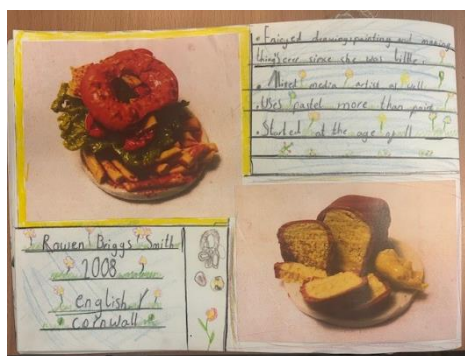 • Enjoyed drawing, painting and making
things ever since she was little.
• Mixed media artist as well
• Uses pastel more than paint
• Started at the age of 11
Rowen Briggs Smith
2008
english /
cornwall